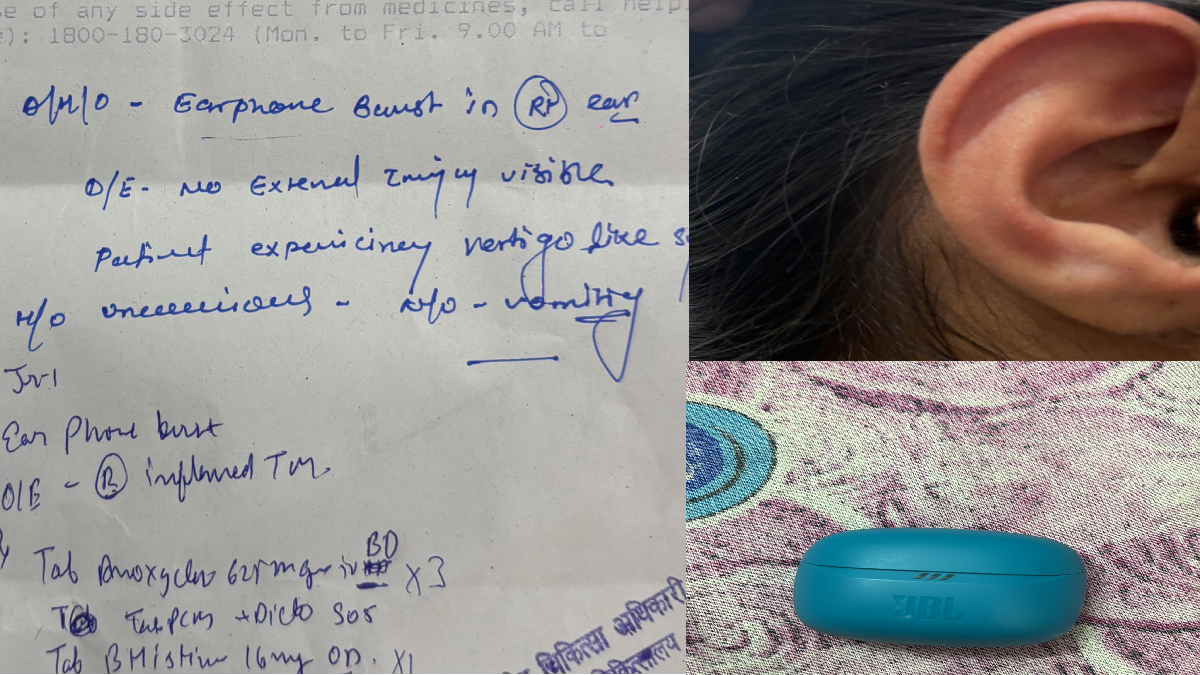 se of any side effect from medicines, call help
e): 1800-180-3024 (Mon. to Fri. 9.00 AM to
O/H/O - Earphone Burst in Rt ear
O/E - No External Injury visible
Patient expericiney vertigo like s
H/O - N/O - vomiting
Ear Phone burst
O/E - R inflamed TM
Tab 625 mg BD x3
Tab PCM + Diclo SOS
Tab 16mg OD. x1
चिकित्सा अधिकारी
JBL